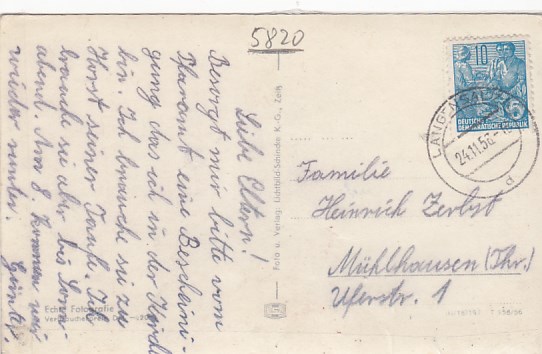 5820
Liebe Eltern!
Besorgt mir bitte vom
Pfarramt eine Bescheini-
gung das ich in der Kirche
bin. Ich brauche sie zu
Horst seiner Taufe. Ich
brauche sie aber bis Sonn-
abend. Am 8. kommen wir
wieder runter.
Günter.
Echte Fotografie
Foto u. Verlag Lichtbild-Schincke K.-G., Zeitz
10
DEUTSCHE
DEMOKRATISCHE REPUBLIK
LANGENSALZA
24.11.56
d
Familie
Heinrich Zerbst
Mühlhausen (Thr.)
Uferstr. 1